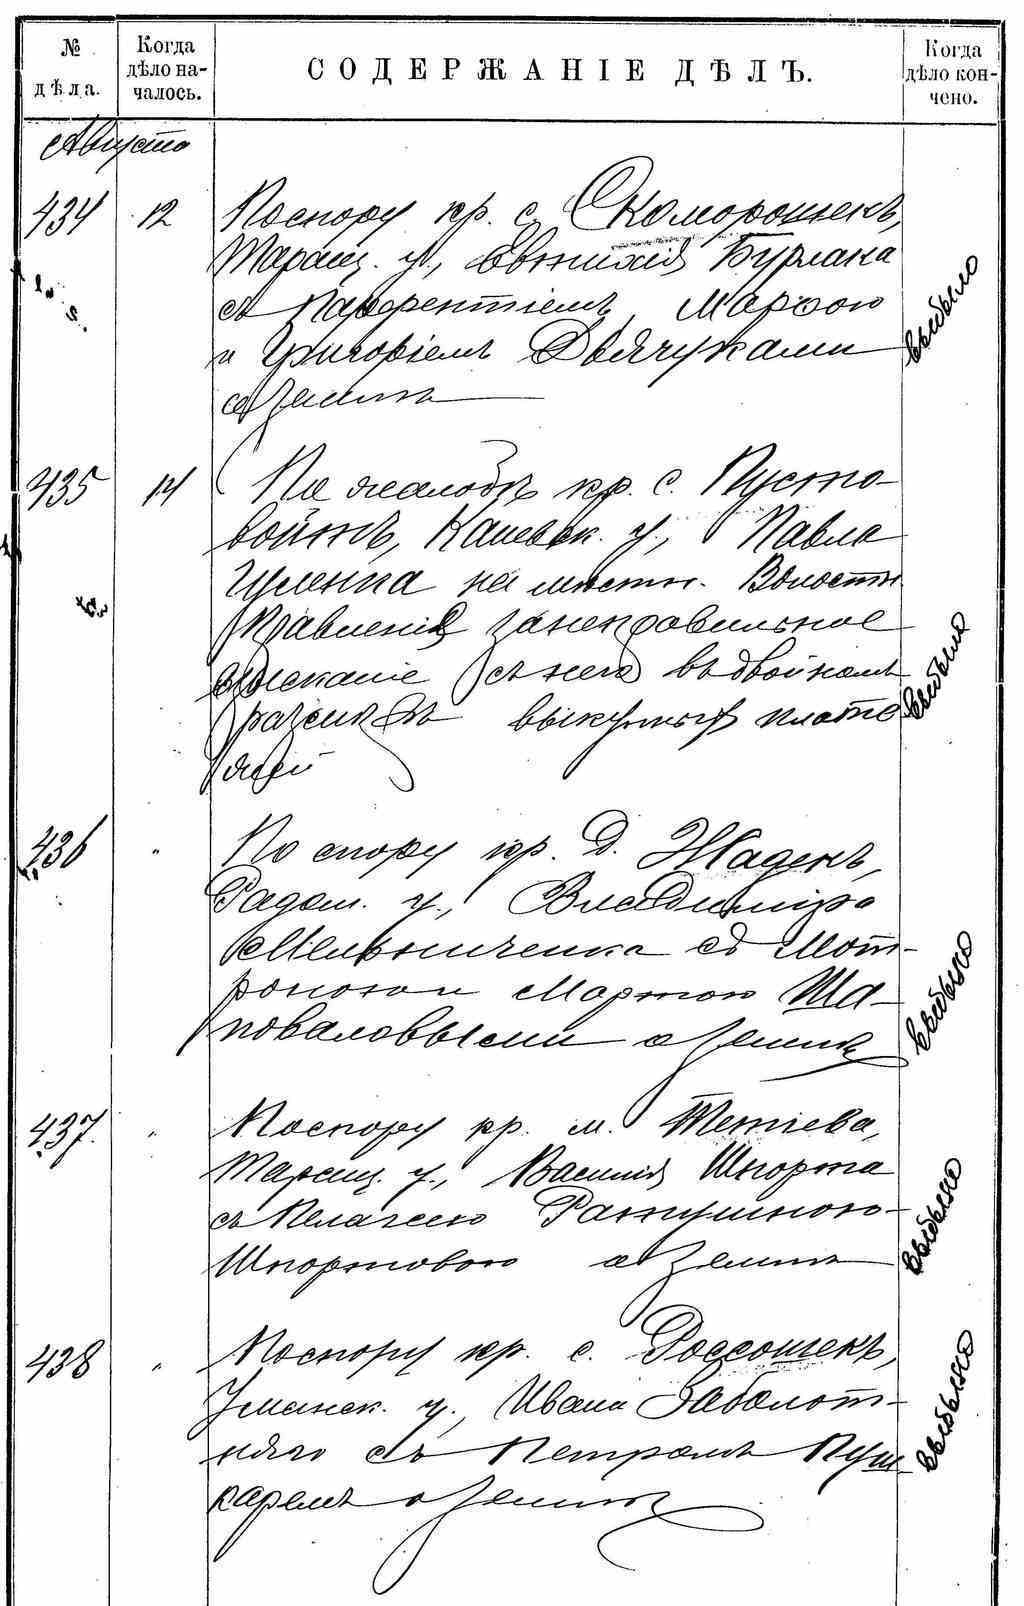 № дѣла.
Когда дѣло началось.
СОДЕРЖАНІЕ ДѢЛЪ.
Когда дѣло кончено.
Августа
434 12 По спору кр. с. Скоморошекъ,
Таращ. у., Евтихія Бурлака
съ Парфентіемъ, Марѳою
и Григоріемъ Дьячуками
о землѣ
выбыло
435 14 По жалобѣ кр. с. Пусто-
войтъ, Каневск. у., Павла
на мѣстн. Волостн.
Правленіе за неправильное
взысканіе съ него въ двойномъ
размѣрѣ выкупныхъ плате
жей
выбыло
436 " По спору кр. д. Жадекъ,
Радом. у., Владиміра
Мельниченка съ Мот-
роною и Мартою Ша-
поваловыми о землѣ
выбыло
437. " По спору кр. м. Тетіева,
Таращ. у., Василія Шпорта
съ Пелагеею
Шпортовою о землѣ
выбыло
438 " По спору кр. с. Россошекъ,
Уманск. у., Ивана Заболот-
няго съ Петромъ Пуш-
каремъ о землѣ
выбыло